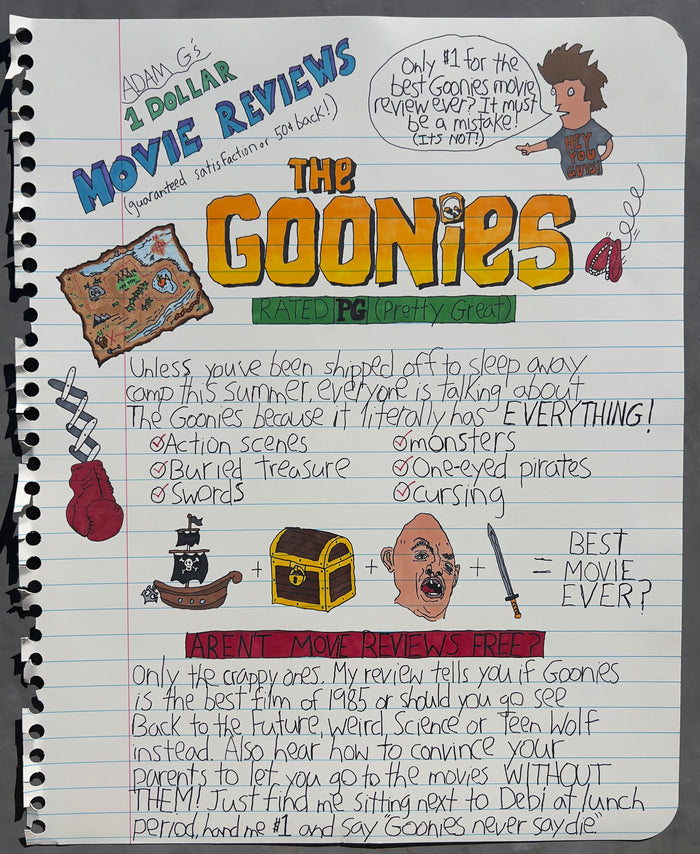 ADAM G's
1 DOLLAR
MOVIE REVIEWS
(guaranteed satisfaction or 50¢ back!)
Only $1 for the
best Goonies movie
review ever? It must
be a mistake!
(IT'S NOT!)
HEY
YOU
GUYS!
THE
GOONIES
RATED PG (Pretty Great)
Unless you've been shipped off to sleep away
camp this summer, everyone is talking about
The Goonies because it literally has EVERYTHING!
Action scenes
monsters
Buried treasure
One-eyed pirates
Swords
cursing
+ + + = BEST
MOVIE
EVER?
AREN'T MOVE REVIEWS FREE?
Only the crappy ones. My review tells you if Goonies
is the best film of 1985 or should you go see
Back to the Future, weird Science or Teen Wolf
instead. Also hear how to convince your
parents to let you go to the movies WITHOUT
THEM! Just find me sitting next to Debi at lunch
period, hand me $1 and say "Goonies never say die."